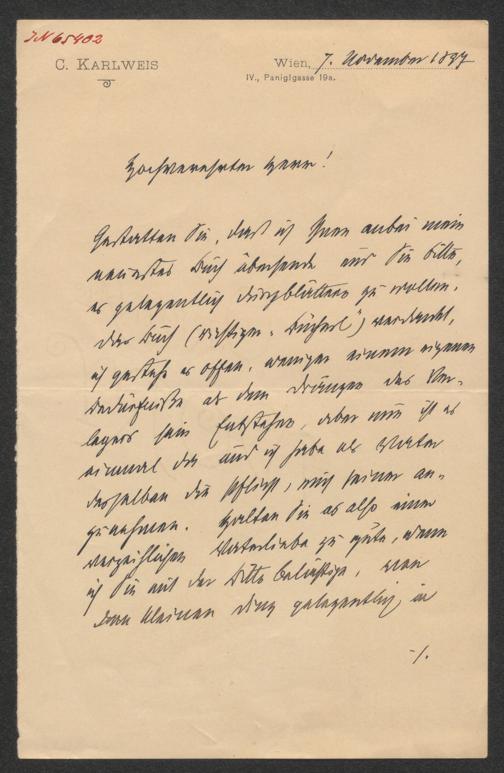 IN 65402
C. KARLWEIS
Wien, 7. November 1897
IV., Paniglgasse 19a.
Hochverehrter Herr!
Gestatten Sie, daß ich Ihnen anbei mein
neuestes Buch übersende und Sie bitte,
es gelegentlich durchblättern zu wollen.
Das Buch (richtiger „Bücherl“) verdankt,
ich gestehe es offen, weniger einem eigenen
Bedürfniße als dem Drängen des Ver-
legers sein Entstehen, aber nun ist es
einmal da und ich habe als Vater
desselben die Pflicht, mich seiner an-
zunehmen. Halten Sie es also einer
verzeihlichen Vaterliebe zu gute, wenn
ich Sie mit der Bitte belästige, von
dem kleinen Ding gelegentlich in
-/.